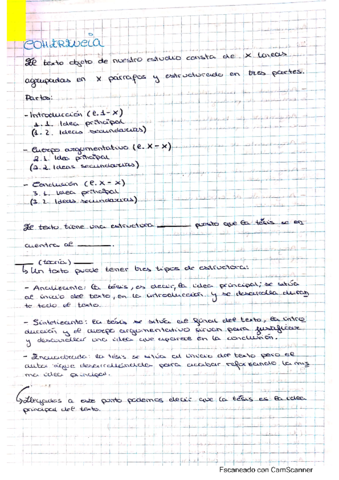 COHERENCIA
El texto objeto de nuestro estudio consta de x líneas
agrupadas en x párrafos y estructurado en tres partes.
Partos:
- Introducción (l.1-x)
1.1. Idea principal
(1.2. Ideas secundarias)
- Cuerpo argumentativo (l.x-x)
2.1. Idea principal
(2.2. Ideas secundarias)
- Conclusión (l.x-x)
3.1. Idea principal
(3.2. Ideas secundarias)
El texto tiene una estructura ______ puesto que la tesis se en
cuentra al ______.
____ (teoría) ____
Un texto puede tener tres tipos de estructura:
- Analizante: la tesis, es decir, la idea principal, se sitúa
al inicio del texto, en la introducción y se desarrolla duran
te todo el texto.
- Sintetizante: la tesis se sitúa al final del texto, la intro
ducción y el cuerpo argumentativo sirven para justificar
y desarrollar una idea que aparece en la conclusión.
- Encuadrada: la tesis se sitúa al inicio del texto pero el
autor sigue desarrollándola para acabar reforzando la mis
ma idea principal.
a este punto podemos decir que la tesis es la idea
principal del texto.
Escaneado con CamScanner